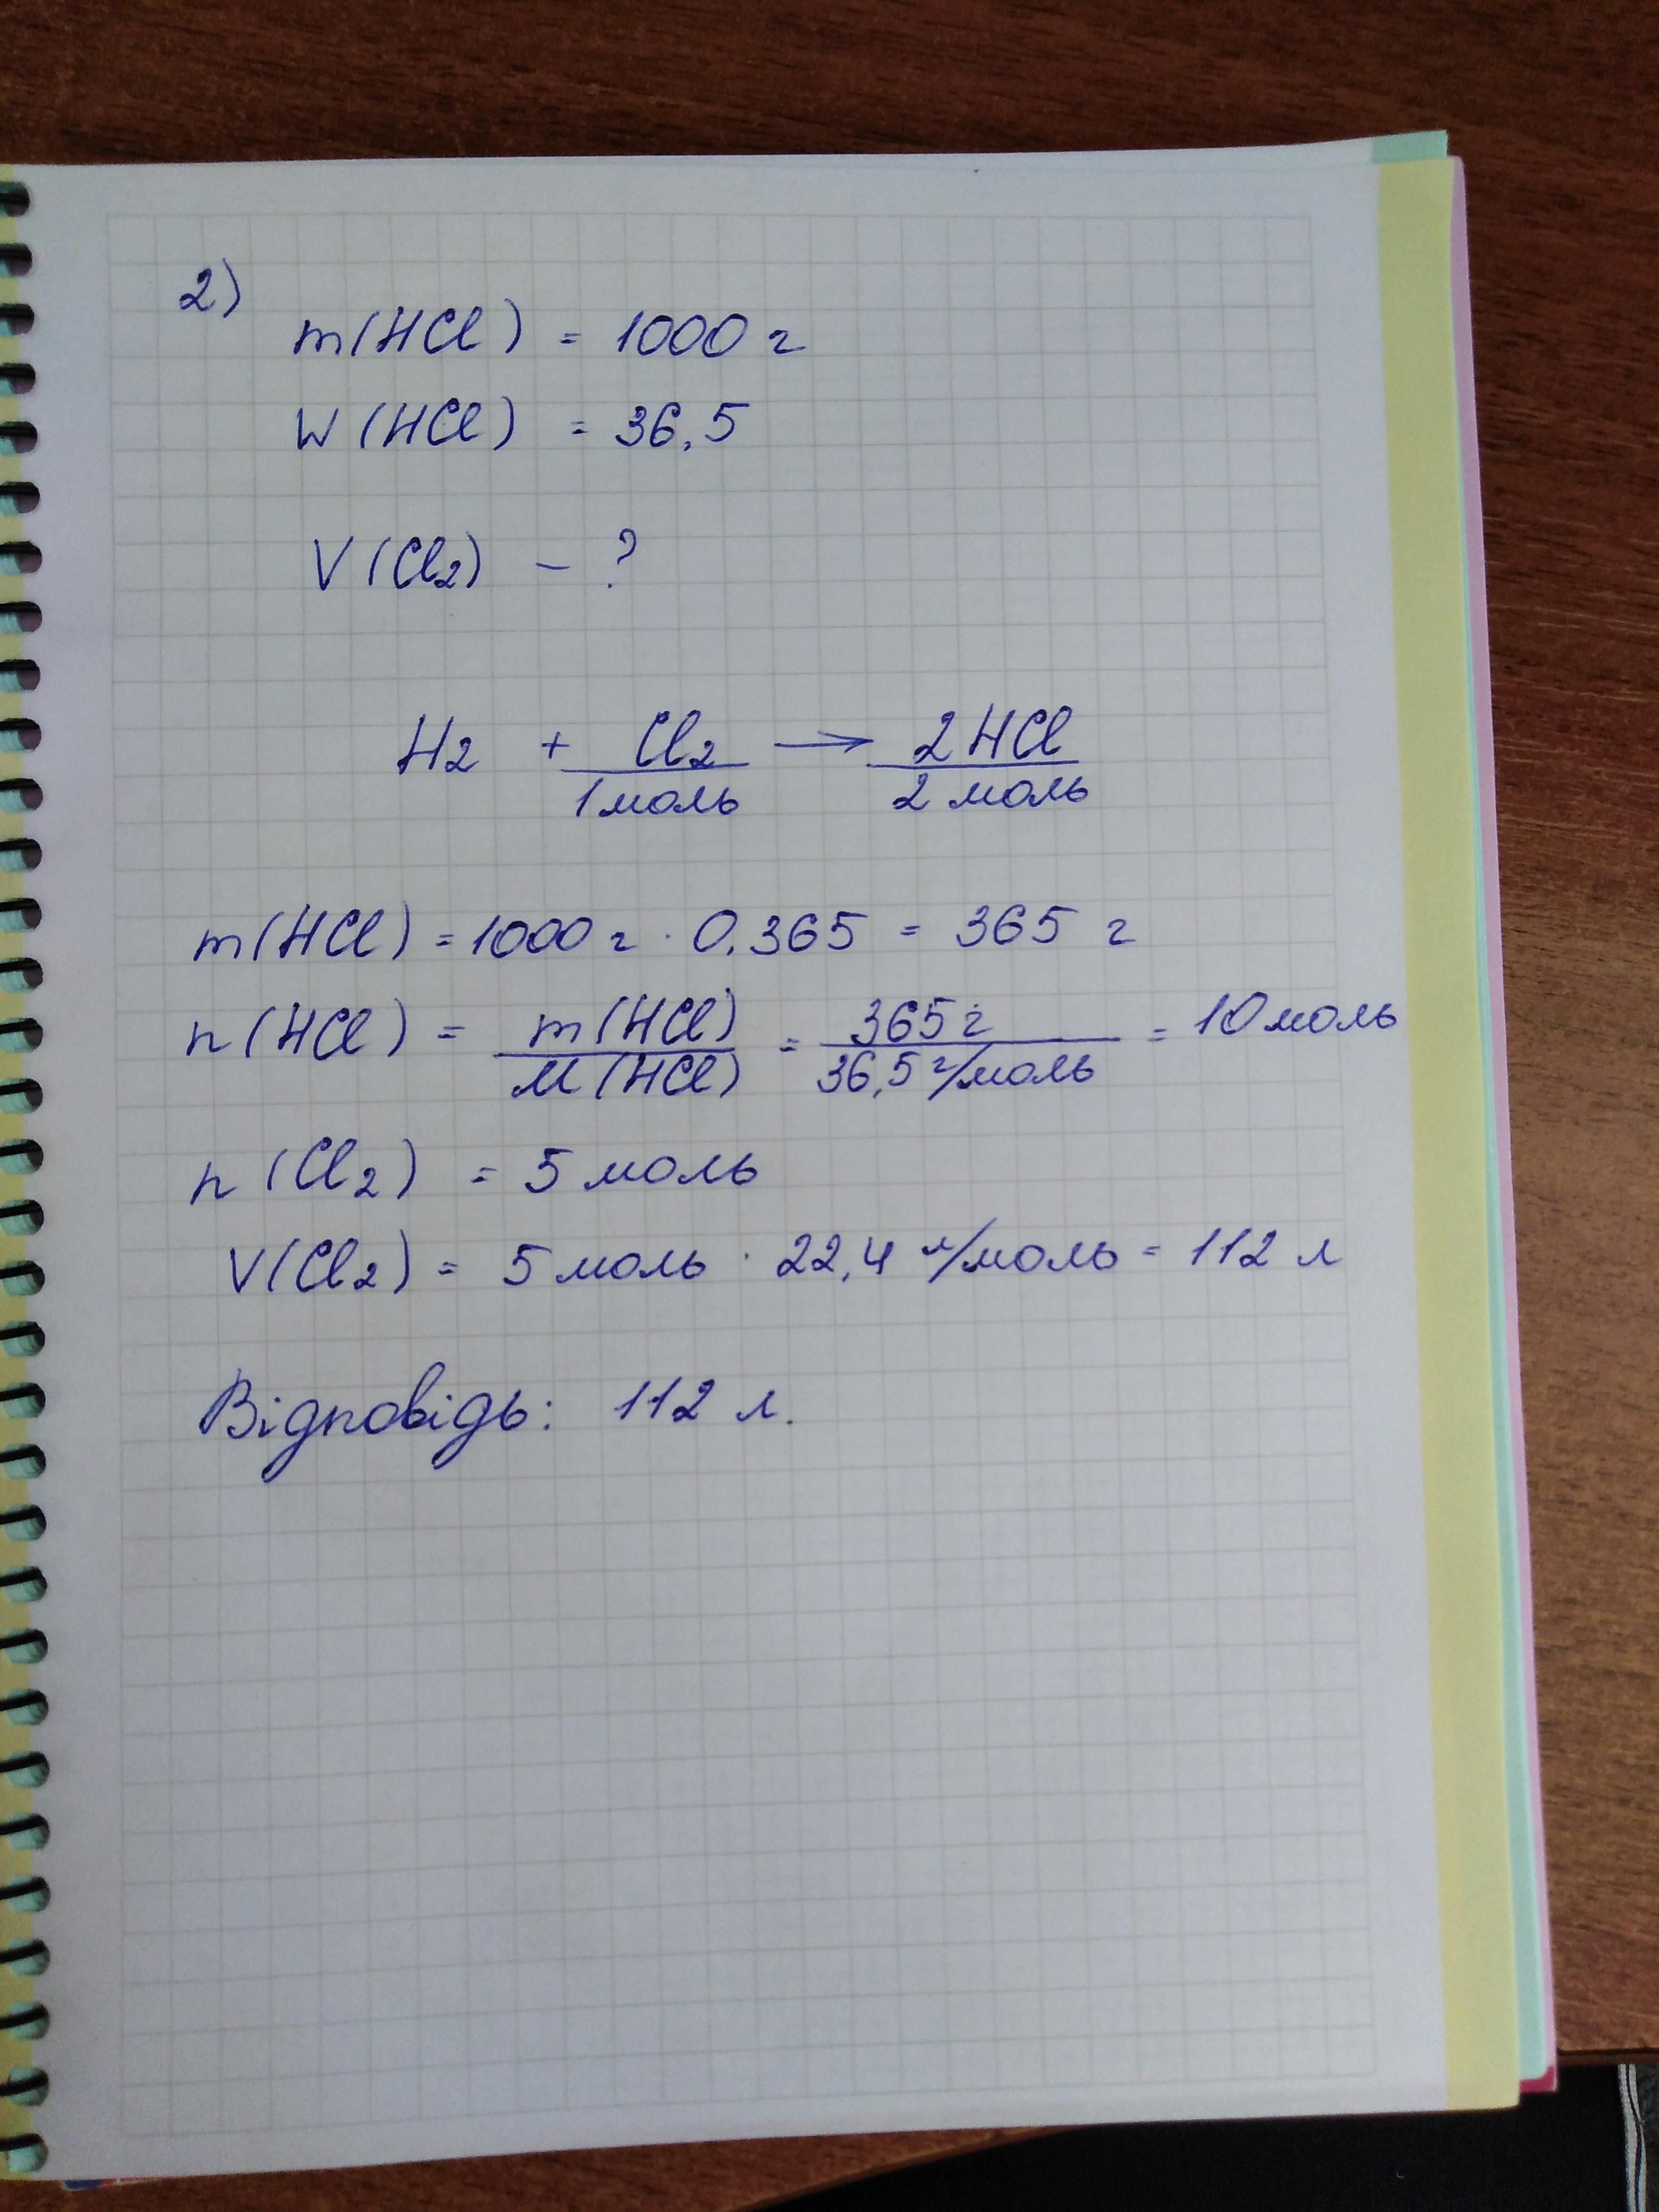 2)
m(HCl) = 1000 г
W(HCl) = 36,5
V(Cl2) - ?
H2 + Cl2 → 2HCl
1 моль 2 моль
m(HCl) = 1000 г · 0,365 = 365 г
n(HCl) = m(HCl) / M(HCl) = 365 г / 36,5 г/моль = 10 моль
n(Cl2) = 5 моль
V(Cl2) = 5 моль · 22,4 л/моль = 112 л
Відповідь: 112 л.